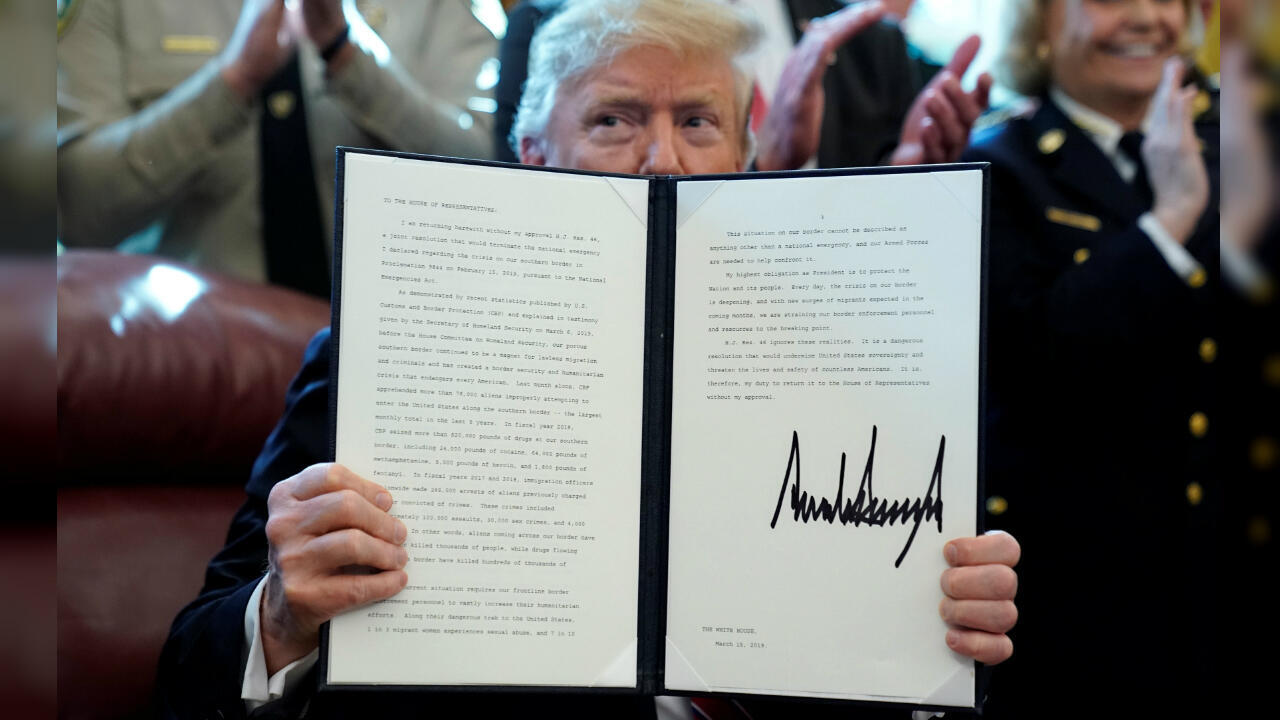 TO THE HOUSE OF REPRESENTATIVES:
I am returning herewith without my approval H.J. Res. 46,
a joint resolution that would terminate the national emergency
I declared regarding the crisis on our southern border in
Proclamation 9844 on February 15, 2019, pursuant to the National
Emergencies Act.
As demonstrated by recent statistics published by U.S.
Customs and Border Protection (CBP) and explained in testimony
given by the Secretary of Homeland Security on March 6, 2019,
before the House Committee on Homeland Security, our porous
southern border continues to be a magnet for lawless migration
and criminals and has created a border security and humanitarian
crisis that endangers every American. Last month alone, CBP
apprehended more than 76,000 aliens improperly attempting to
enter the United States along the southern border -- the largest
monthly total in the last 5 years. In fiscal year 2018,
CBP seized more than 820,000 pounds of drugs at our southern
border, including 24,000 pounds of cocaine, 64,000 pounds of
methamphetamine, 5,000 pounds of heroin, and 1,800 pounds of
fentanyl. In fiscal years 2017 and 2018, immigration officers
made 266,000 arrests of aliens previously charged
convicted of crimes. These crimes included
100,000 assaults, 30,000 sex crimes, and 4,000
In other words, aliens coming across our border have
killed thousands of people, while drugs flowing
border have killed hundreds of thousands of
situation requires our frontline border
personnel to vastly increase their humanitarian
efforts. Along their dangerous trek to the United States,
1 in 3 migrant women experiences sexual abuse, and 7 in 10
This situation on our border cannot be described as
anything other than a national emergency, and our Armed Forces
are needed to help confront it.
My highest obligation as President is to protect the
Nation and its people. Every day, the crisis on our border
is deepening, and with new surges of migrants expected in the
coming months, we are straining our border enforcement personnel
and resources to the breaking point.
H.J. Res. 46 ignores these realities. It is a dangerous
resolution that would undermine United States sovereignty and
threaten the lives and safety of countless Americans. It is,
therefore, my duty to return it to the House of Representatives
without my approval.
THE WHITE HOUSE,
March 15, 2019.